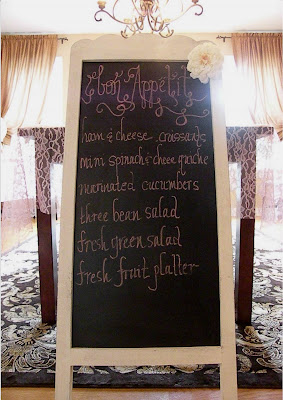 bon Appétit
ham & cheese croissants
mini spinach & cheese quiche
marinated cucumbers
three bean salad
fresh green salad
fresh fruit platter